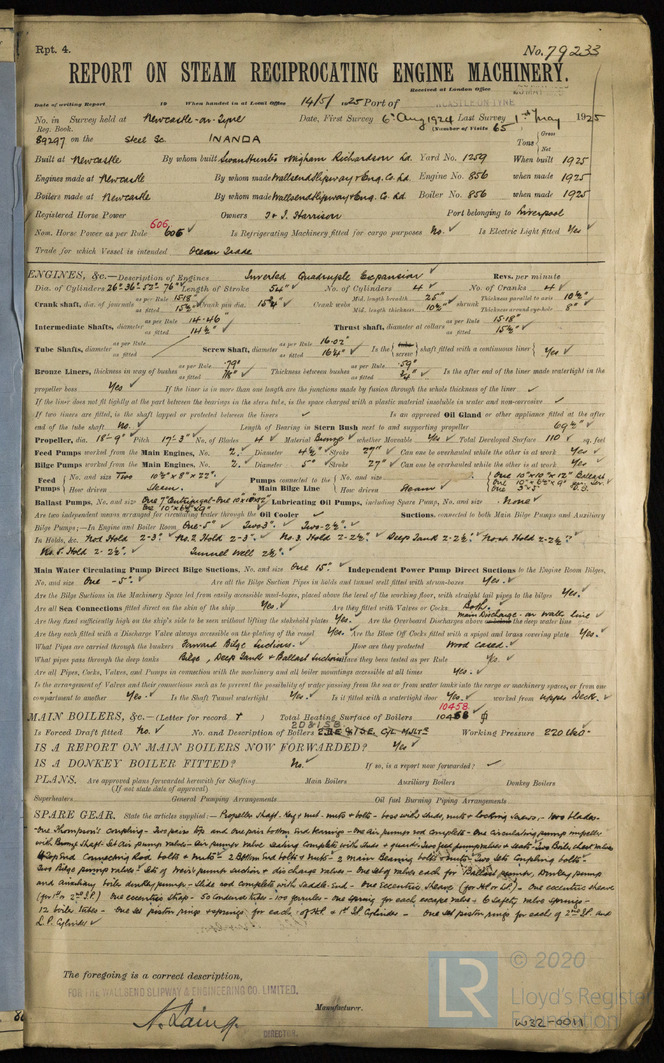 Rpt. 4.
No. 79233
REPORT ON STEAM RECIPROCATING ENGINE MACHINERY.
Received at London Office
Date of writing Report 19 When handed in at Local Office 14/5/1925 Port of NEWCASTLE-ON-TYNE
No. in Survey held at Newcastle-on-Tyne Date, First Survey 6th Aug 1924 Last Survey 1st May 1925
Reg. Book. (Number of Visits 65)
89297 on the Steel Sc. INANDA Tons { Gross Net
Built at Newcastle By whom built Swan Hunter & Wigham Richardson Ld. Yard No. 1259 When built 1925
Engines made at Newcastle By whom made Wallsend Slipway & Eng. Co. Ld. Engine No. 856 when made 1925
Boilers made at Newcastle By whom made Wallsend Slipway & Eng. Co. Ld. Boiler No. 856 when made 1925
Registered Horse Power Owners T. & J. Harrison Port belonging to Liverpool
606
Nom. Horse Power as per Rule 606 Is Refrigerating Machinery fitted for cargo purposes No. Is Electric Light fitted Yes
Trade for which Vessel is intended Ocean Trade
ENGINES, &c.—Description of Engines Inverted Quadruple Expansion Revs. per minute
Dia. of Cylinders 26" 36" 52" 76" Length of Stroke 54" No. of Cylinders 4 No. of Cranks 4
Crank shaft, dia. of journals as per Rule 15.18" as fitted 15¾" Crank pin dia. 15¾" Crank webs Mid. length breadth 25" Mid. length thickness 10½" shrunk Thickness parallel to axis 10½" Thickness around eyehole 8"
Intermediate Shafts, diameter as per Rule 14.46 as fitted 14½" Thrust shaft, diameter at collars as per Rule 15.18" as fitted 15¾"
Tube Shafts, diameter as per Rule as fitted Screw Shaft, diameter as per Rule 16.02" as fitted 16¼" Is the { tube screw } shaft fitted with a continuous liner { Yes
Bronze Liners, thickness in way of bushes as per Rule .79" as fitted Thickness between bushes as per Rule .59" as fitted ¾" Is the after end of the liner made watertight in the
propeller boss Yes If the liner is in more than one length are the junctions made by fusion through the whole thickness of the liner
If the liner does not fit tightly at the part between the bearings in the stern tube, is the space charged with a plastic material insoluble in water and non-corrosive
If two liners are fitted, is the shaft lapped or protected between the liners Is an approved Oil Gland or other appliance fitted at the after
end of the tube shaft No. Length of Bearing in Stern Bush next to and supporting propeller 69½"
Propeller, dia. 18'-9" Pitch 17'-3" No. of Blades 4 Material Bronze whether Moveable Yes Total Developed Surface 110 sq. feet
Feed Pumps worked from the Main Engines, No. 2. Diameter 4½" Stroke 27" Can one be overhauled while the other is at work Yes
Bilge Pumps worked from the Main Engines, No. 2. Diameter 5" Stroke 27" Can one be overhauled while the other is at work Yes
Feed Pumps { No. and size Two 10½" x 8" x 22" How driven Steam Pumps connected to the Main Bilge Line { No. and size One 10" x 10" x 12" Ballast How driven Steam
Ballast Pumps, No. and size One 7" Centrifugal Lubricating Oil Pumps, including Spare Pump, No. and size None
Are two independent means arranged for circulating water through the Oil Cooler Suctions, connected to both Main Bilge Pumps and Auxiliary
Bilge Pumps;—In Engine and Boiler Room One-5" Two-3" Two-2½"
In Holds, &c. No.1 Hold 2-3" No.2 Hold 2-3" No.3 Hold 2-2½" Deep Tank 2-2½" No.4 Hold 2-2½"
No.5 Hold 2-2½" Tunnel Well 2½"
Main Water Circulating Pump Direct Bilge Suctions, No. and size One 15" Independent Power Pump Direct Suctions to the Engine Room Bilges,
No. and size One -5" Are all the Bilge Suction Pipes in holds and tunnel well fitted with strum-boxes Yes
Are the Bilge Suctions in the Machinery Space led from easily accessible mud-boxes, placed above the level of the working floor, with straight tail pipes to the bilges Yes
Are all Sea Connections fitted direct on the skin of the ship Yes. Are they fitted with Valves or Cocks Both.
Are they fixed sufficiently high on the ship's side to be seen without lifting the stokehold plates Yes. Are the Overboard Discharges above or below the deep water line main discharge on water line
Are they each fitted with a Discharge Valve always accessible on the plating of the vessel Yes. Are the Blow Off Cocks fitted with a spigot and brass covering plate Yes.
What Pipes are carried through the bunkers Forward Bilge Suctions How are they protected Wood cased.
What pipes pass through the deep tanks Bilge, Deep Tank & Ballast Suctions Have they been tested as per Rule Yes.
Are all Pipes, Cocks, Valves, and Pumps in connection with the machinery and all boiler mountings accessible at all times Yes.
Is the arrangement of Valves and their connections such as to prevent the possibility of water passing from the sea or from water tanks into the cargo or machinery spaces, or from one
compartment to another Yes. Is the Shaft Tunnel watertight Yes. Is it fitted with a watertight door Yes. worked from Upper Deck.
MAIN BOILERS, &c.—(Letter for record ) Total Heating Surface of Boilers 10458
Is Forced Draft fitted No. No. and Description of Boilers 2DB & 1SB Working Pressure 220 lbs.
IS A REPORT ON MAIN BOILERS NOW FORWARDED? Yes
IS A DONKEY BOILER FITTED? No. If so, is a report now forwarded?
PLANS. Are approved plans forwarded herewith for Shafting Main Boilers Auxiliary Boilers Donkey Boilers
(If not state date of approval)
Superheaters General Pumping Arrangements Oil fuel Burning Piping Arrangements
SPARE GEAR. State the articles supplied:— Propeller Shaft - Key & nut - nuts & bolts - boss with studs, nuts & locking screws, - two blades -
One Thompson's coupling - Two pairs top and one pair bottom End bearings - One Air pump rod complete - One Circulating pump impeller
with Bronze shaft - Set Air pump valves - Air pump valve seating complete with studs & guards - Two feed pump valves & seats - Two Boiler check valves
4 Top End Connecting Rod bolts & nuts - 2 Bottom End bolts & nuts - 2 Main Bearing bolts & nuts - Two Sets Coupling bolts -
Two Bilge pump valves - Sets of Weir's pumps suction & discharge valves - One set of valves each for Ballast pumps, Donkey pump
and auxiliary boiler donkey pumps - Slide rod complete with Saddle End - One Eccentric Sheave (for H.P. or L.P.) - One eccentric sheave
(for 1st or 2nd I.P.) One eccentric strap - 50 Condenser tubes - 100 ferrules - One spring for each escape valve - 6 safety valve springs -
12 boiler tubes - One set piston rings & springs for each of H.P. & 1st I.P. Cylinders - One set piston rings for each of 2nd I.P. and
L.P. Cylinders
The foregoing is a correct description,
FOR THE WALLSEND SLIPWAY & ENGINEERING CO. LIMITED.
A. Laing. Manufacturer.
DIRECTOR.
© 2020
LR Lloyd's Register
Foundation
W32-0011